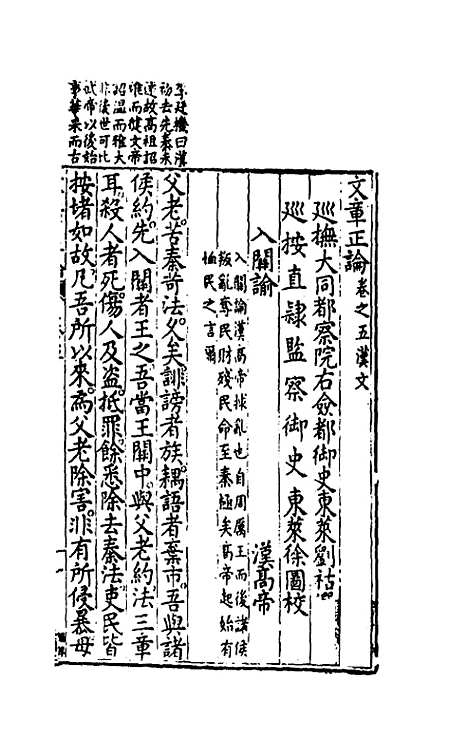 文章正論 卷之五漢文
巡撫大同都察院右僉都御史東萊劉祜
巡按直隸監察御史東萊徐圖校
入關諭 漢高帝
入關諭漢高帝拯亂也自周厲王而後諸侯
叛亂奪民財殘民命至秦極矣高帝起始有
恤民之言爾
父老苦秦苛法久矣誹謗者族耦語者棄市吾與諸
侯約先入關者王之吾當王關中與父老約法三章
耳殺人者死傷人及盜抵罪餘悉除去秦法吏民皆
按堵如故凡吾所以來為父老除害非有所侵暴毋
樓曰漢
初去先秦未
遠故高祖招
唯而健文帝
詔溫而雅大
非後世可比
武帝以後始
事華采而古